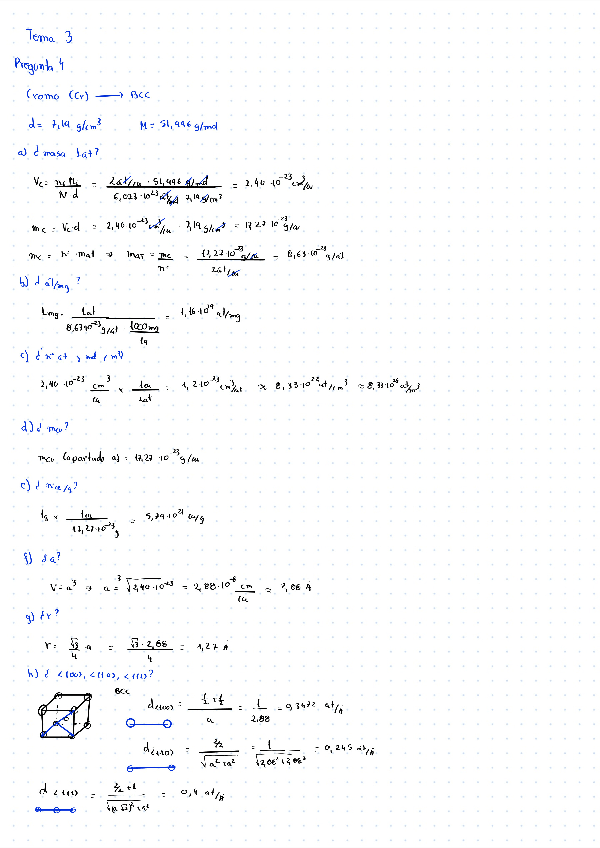 Tema 3
Pregunta 4
Cromo (Cr) ⟶ BCC
d = 7,19 g/cm³ M = 51,996 g/mol
a) ¿ masa 1 at?
Vc = nº·M / N·d = 2 at/cu · 51,996 g/mol / 6,023·10²³ at/mol · 7,19 g/cm³ = 2,40·10⁻²³ cm³/cu
mc = Vc·d = 2,40·10⁻²³ cm³/cu · 7,19 g/cm³ = 17,27·10⁻²³ g/cu
mc = nº · mat → mat = mc / nº = 17,27·10⁻²³ g/cu / 2 at/cu = 8,63·10⁻²³ g/at
b) ¿ at/mg ?
1 mg · 1 at / 8,63·10⁻²³ g/at · 1000 mg / 1g = 1,16·10¹⁹ at/mg
c) ¿ nº at y mol / m³?
2,40·10⁻²³ cm³/cu × 1 cu / 2 at = 1,2·10⁻²³ cm³/at → 8,33·10²² at/cm³ = 8,33·10²⁸ at/m³
d) ¿ mcu?
mcu (apartado a) = 17,27·10⁻²³ g/cu
e) ¿ nº cu/g?
1g × 1 cu / 17,27·10⁻²³ g = 5,79·10²¹ cu/g
f) ¿ a?
V = a³ → a = ³√2,40·10⁻²³ = 2,88·10⁻⁸ cm/cu = 2,88 Å
g) ¿ r?
r = √3/4 · a = √3 · 2,88 / 4 = 1,27 Å
h) ¿ <100>, <110>, <111>?
BCC
d<100> = ½ + ½ / a = 1 / 2,88 = 0,3472 at/Å
d<110> = 2/2 / √a² + a² = 1 / √2,88² + 2,88² = 0,245 at/Å
d<111> = 2/2 + 1 / √(a√2)² + a² = 0,4 at/Å